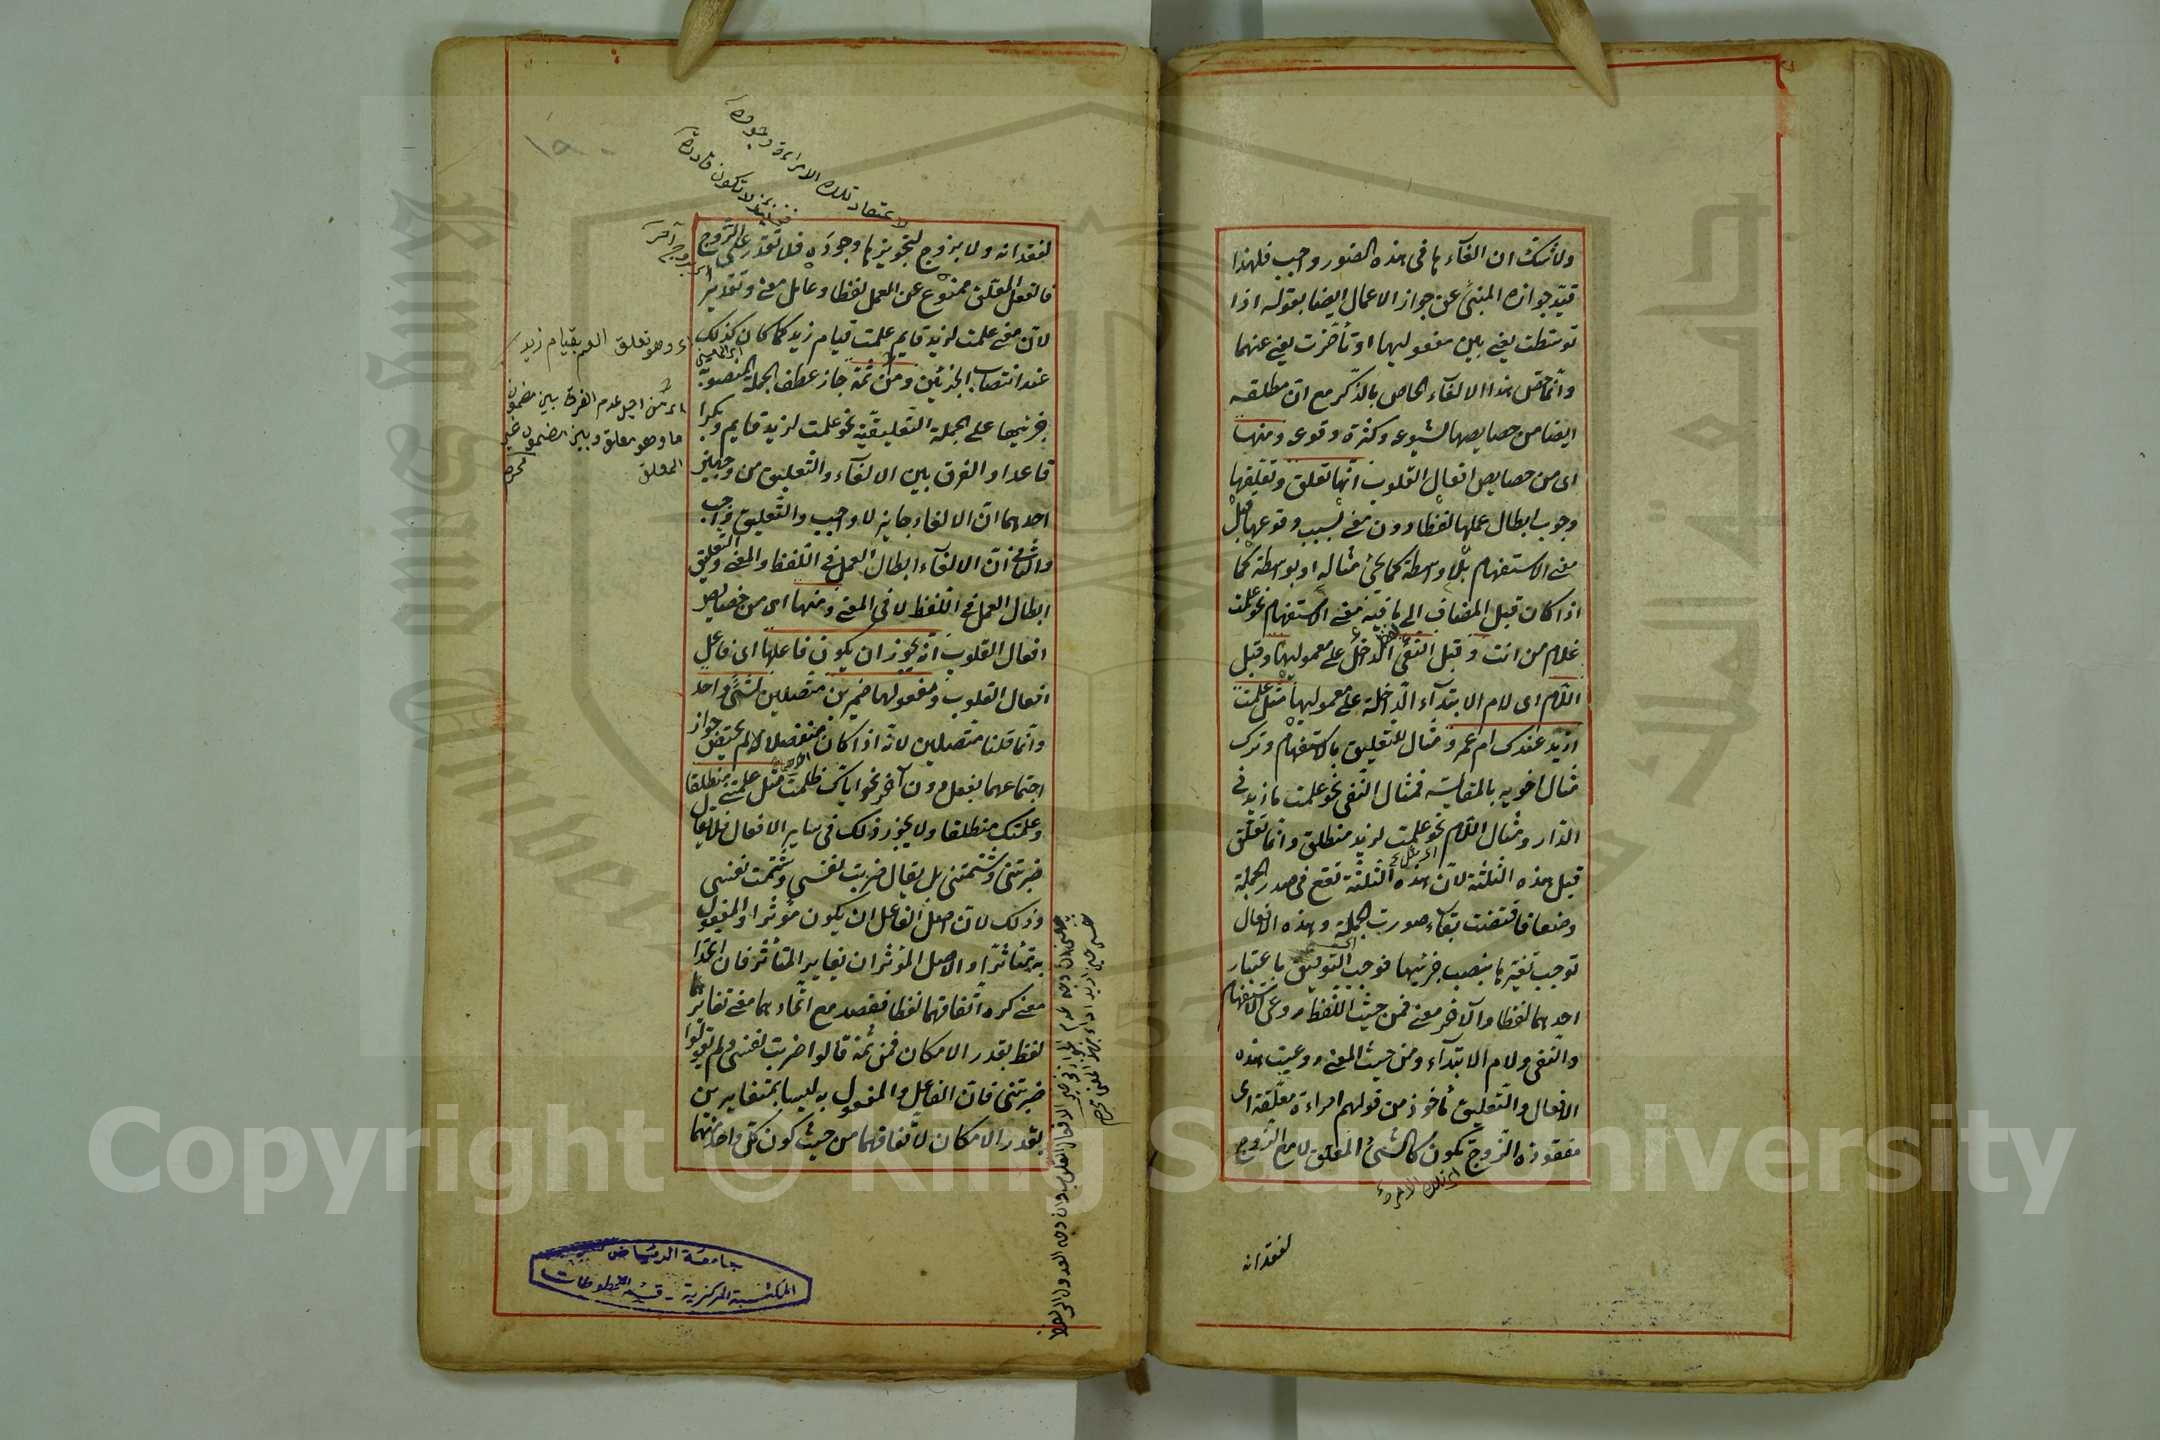 ولا شك ان الغآءها فى هذه الصور واجب فلهذا
قيد جوازه المنبئ عن جواز الاعمال ايضا بقوله اذا
توسطت يعنى بين مفعوليها او تأخرت يعنى عنهما
وانما خص هذا الالغآء الخاص بالذكر مع ان مطلقه
ايضا من خصايصها لشيوعه وكثرة وقوعه ومنها
اى من خصايص افعال القلوب انها تعلق وتعليقها
وجوب ابطال عملها لفظا دون معنى بسبب وقوعها قبل
معنى الاستفهام بلا واسطة كما يجئ مثاله او بواسطة كما
اذا كان قبل المضاف الى ما فيه معنى الاستفهام نحو علمت
غلام من انت وقبل النفى الداخل على معموليها وقبل
اللام اى لام الابتدآء الداخلة على معموليها مثل علمت
ازيد عندك ام عمرو مثال للتعليق بالاستفهام وترك
مثال اخويه بالمقايسة فمثال النفى نحو علمت ما زيد فى
الدار ومثال اللام نحو علمت لزيد منطلق وانما تعلق
قبل هذه الثلثة لان هذه الثلثة تقع فى صدر الجملة
وضعا فاقتضت بقآء صورت الجملة وهذه الافعال
توجب تغيرها بنصب جزئيها فوجب التوفيق باعتبار
احدهما لفظا والآخر معنى فمن حيث اللفظ روعى الاستفهام
والنفى ولام الابتدآء ومن حيث المعنى روعيت هذه
الافعال والتعليق مأخوذ من قولهم امراءة معلقة اى
مفقودة الزوج تكون كالشئ المعلق لا مع الزوج
اى تلك الامرءة
لفقدانه
لاعتقاد تلك الامراءة وجوده
لفقدانه ولا بزوج لتجويزها وجوده فلا تقدر على التزوج
فالفعل المعلق ممنوع عن العمل لفظا وعامل معنى وتقديرا
لان معنى علمت لزيد قايم علمت قيام زيد كما كان كذلك
عند انتصاب الجزئين ومن ثمة جاز عطف الجملة المنصوبة
جزئيها على الجملة التعليقية نحو علمت لزيد قايم وبكرا
قاعدا والفرق بين الالغآء والتعليق من وجهين
احدهما ان الالغاء جايز لا واجب والتعليق واجب
والثانى ان الالغآء ابطال العمل فى اللفظ والمعنى والتعليق
ابطال العمل فى اللفظ لا فى المعنى ومنها اى من خصايص
افعال القلوب انه يجوز ان يكون فاعلها اى فاعل
افعال القلوب ومفعولها ضميرين متصلين لشئ واحد
وانما قلنا متصلين لانه اذا كان منفصلا لم يختص جواز
اجتماعهما بفعل دون آخر نحو اياك ظلمت مثل علمتنى منطلقا
وعلمتك منطلقا ولا يجوز ذلك فى ساير الافعال فلا يقال
ضربتنى وشتمتنى بل يقال ضربت نفسى وشتمت نفسى
وذلك لان اصل الفاعل ان يكون مؤثرا والمفعول
به متأثرا والاصل المؤثر ان يغاير المتأثر فان اتحدا
معنى كره اتفاقهما لفظا فقصد مع اتحادهما معنى تغايرهما
لفظ بقدر الامكان فمن ثمة قالوا ضربت نفسى ولم يقولوا
ضربتنى فان الفاعل والمفعول به ليسا بمتغايرين
بقدر الامكان لاتفاقهما من حيث كون كل واحد منهما
اى وهو تعلق العلم بقيام زيد
اى من اجل عدم الفرق بين مضمون
ما وهو معلق وبين مضمون غير
المعلق
جامعة الرياض
المكتبة المركزية - قسم المخطوطات
Copyright © King Saud University